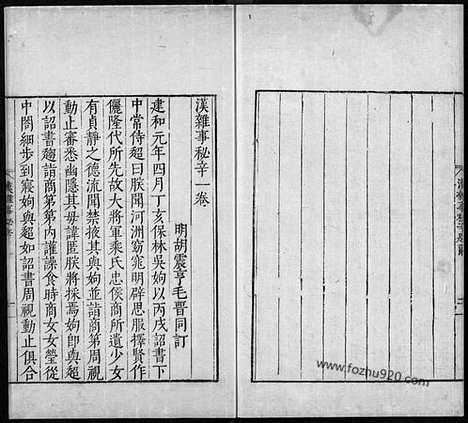 漢雜事秘辛一卷
明胡震亨毛晋同訂
建和元年四月丁亥保林吳姁以丙戌詔書下
中常侍超曰朕聞河洲窈窕明辟思服擇賢作
儷隆代所先故大將軍乘氏忠侯商所遺少女
有貞靜之德流聞禁掖其與姁並詣商第周視
動止審悉幽隱其毋諱匿朕將採焉姁即與超
以詔書趨詣商第第内讙譟食時商女女瑩從
中閤細步到寢姁與超如詔書周視動止俱合
www.fozhu920.com